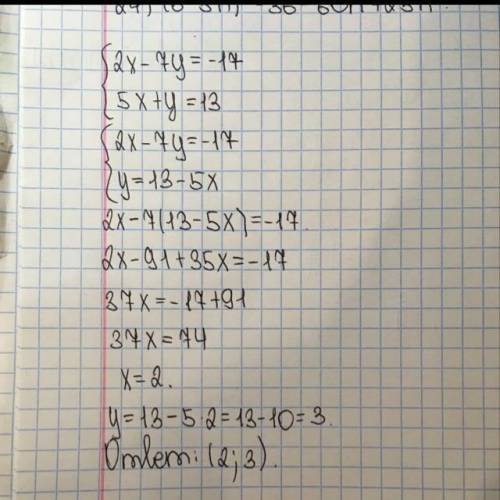 2x-7y=-17
5x+y=13
2x-7y=-17
y=13-5x
2x-7(13-5x)=-17.
2x-91+35x=-17
37x=-17+91
37x=74
x=2.
y=13-5·2=13-10=3.
Ответ: (2;3).